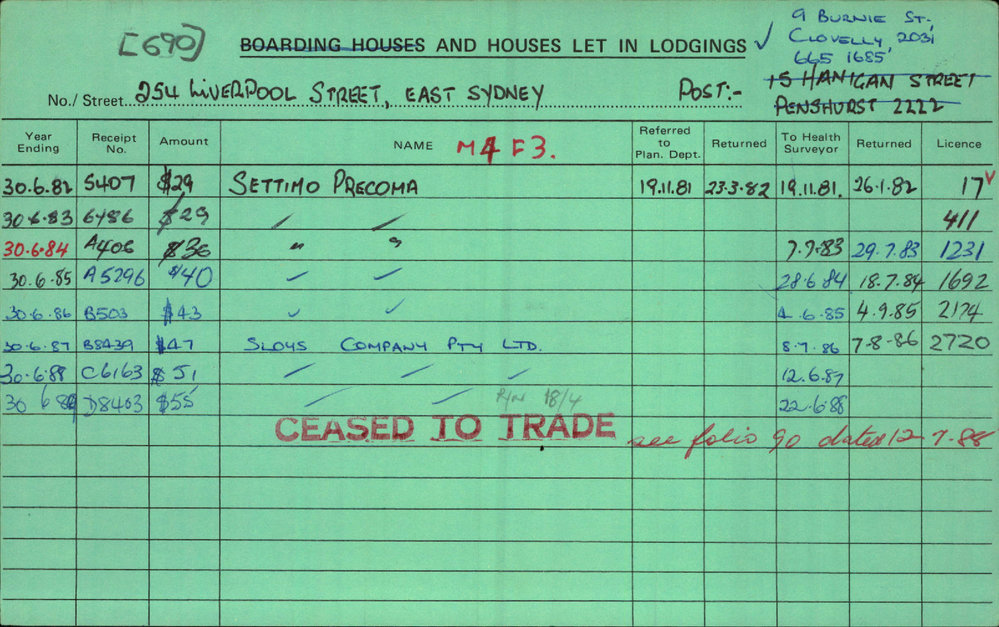 [690]
BOARDING HOUSES AND HOUSES LET IN LODGINGS ✓
9 BURNIE ST,
CLOVELLY, 2031
665 1685
No./ Street 254 LIVERPOOL STREET, EAST SYDNEY POST:- 15 HANIGAN STREET
PENSHURST 2222
Year Ending Receipt No. Amount NAME M4 F3. Referred to Plan. Dept. Returned To Health Surveyor Returned Licence
30.6.82 5407 $29 SETTIMO PRECOMA 19.11.81 23-3-82 19.11.81. 26.1.82 17 ✓
30.6.83 6486 $29 " " 411
30.6.84 A406 $36 " " 7.7.83 29.7.83 1231
30.6.85 A5296 $40 " " 28.6.84 18.7.84 1692
30.6.86 B503 $43 " " 4.6.85 4.9.85 2174
30.6.87 B8439 $47 SLOYS COMPANY PTY LTD. 8.7.86 7-8-86 2720
30.6.88 C6163 $51 " " " 12.6.87
30 6 89 D8403 $55 " " 18/4 22.6.88
CEASED TO TRADE see folio 90 dated 12 7.88